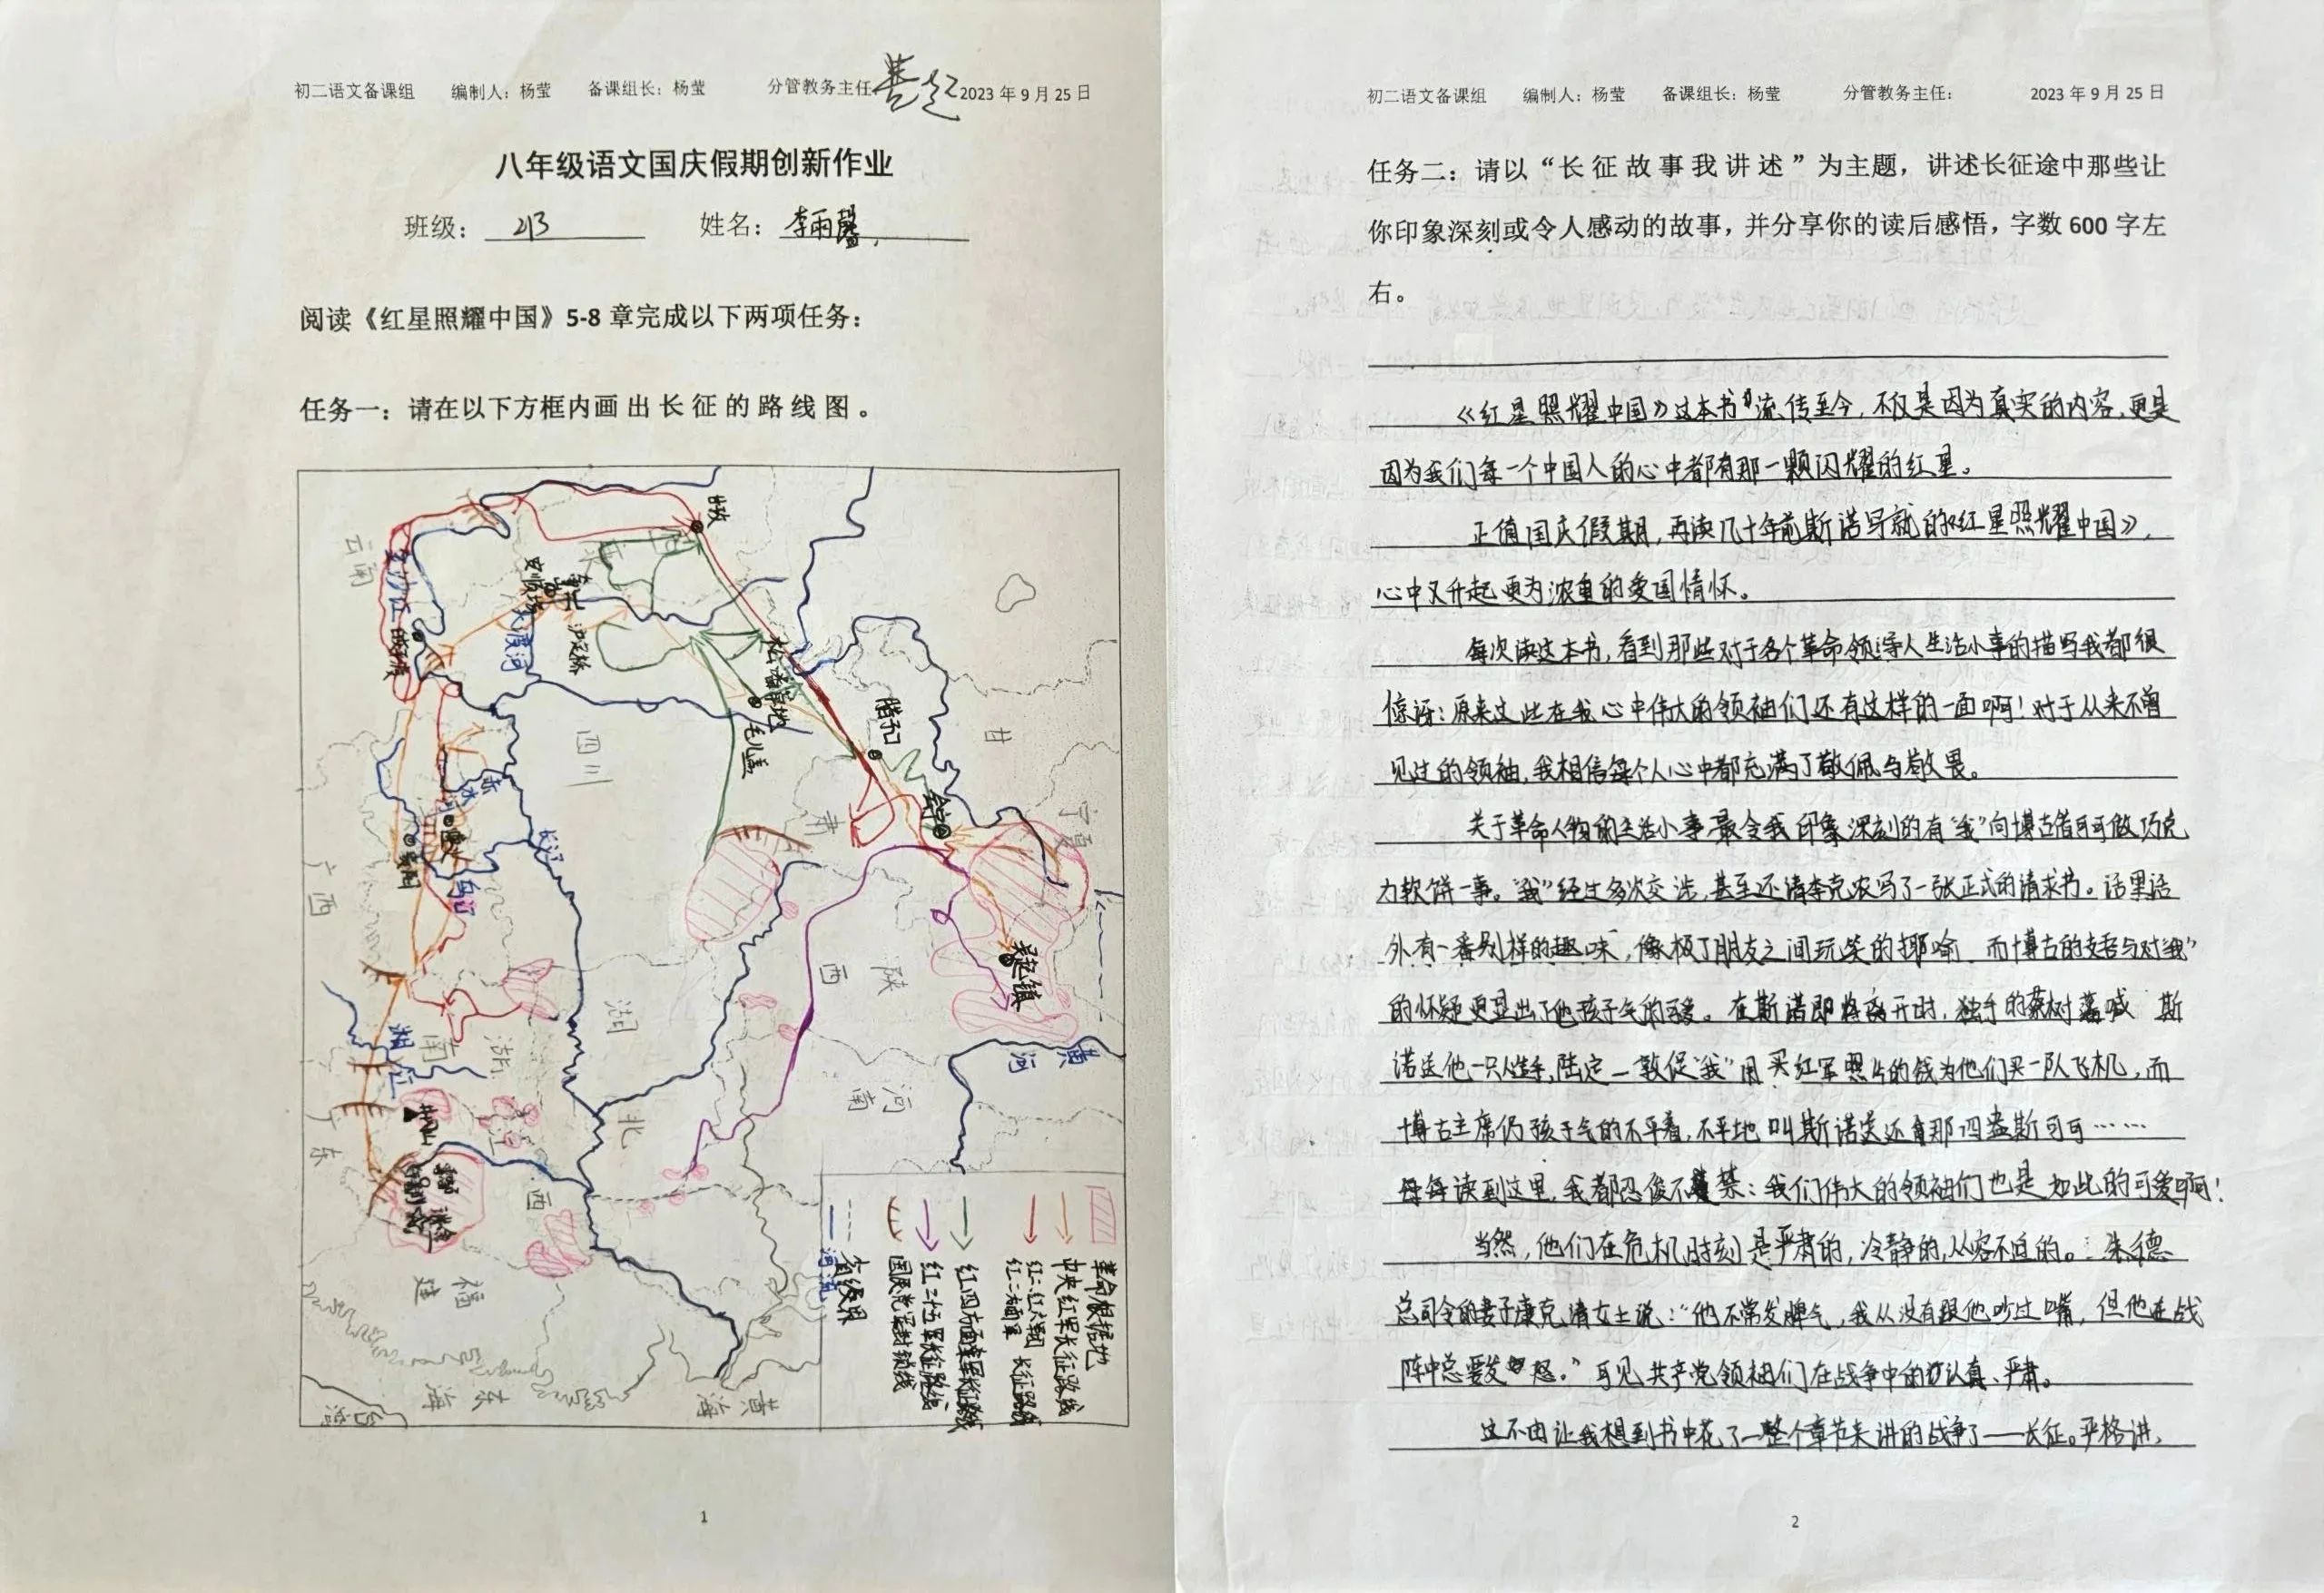 初二语文备课组 编制人：杨莹 备课组长：杨莹 分管教务主任 2023 年 9 月 25 日
八年级语文国庆假期创新作业
班级： 213 姓名： 李雨馨
阅读《红星照耀中国》5-8 章完成以下两项任务：
任务一：请在以下方框内画出长征的路线图。
甘孜
云南
金沙江
皎平渡
安顺场
大渡河
泸定桥
松潘草地
毛儿盖
腊子口
甘
肃
会宁
宁夏
四川
赤水河
遵义
贵阳
乌江
长江
广西
吴起镇
陕
西
湖
北
湖
南
湘江
黄河
河南
广东
井冈山
江
西
瑞金
福建
东海
黄海
台湾
革命根据地
中央红军长征路线
红二、红六军团
红二方面军 长征路线
红四方面军长征路线
红二十五军长征路线
国民党军封锁线
省级界
河流
1
初二语文备课组 编制人：杨莹 备课组长：杨莹 分管教务主任： 2023 年 9 月 25 日
任务二：请以“长征故事我讲述”为主题，讲述长征途中那些让
你印象深刻或令人感动的故事，并分享你的读后感悟，字数 600 字左
右。
《红星照耀中国》这本书流传至今，不仅是因为真实的内容，更是
因为我们每一个中国人的心中都有那一颗闪耀的红星。
正值国庆假期，再读几十年前斯诺写就的《红星照耀中国》，
心中又升起更为浓重的爱国情怀。
每次读这本书，看到那些对于各个革命领导人生活小事的描写我都很
惊讶：原来这些在我心中伟大的领袖们还有这样的一面啊！对于从来不曾
见过的领袖，我相信每个人心中都充满了敬佩与敬畏。
关于革命人物的生活小事最令我印象深刻的有“我”向博古借可可做巧克
力软饼一事。“我”经过多次交涉，甚至还请李克农写了一张正式的请求书。话里话
外有一番别样的趣味，像极了朋友之间玩笑的揶喻，而博古的支吾与对“我”
的怀疑更显出了他孩子气的可爱。在斯诺即将离开时，独手的蔡树藩喊 斯
诺送他一只人造手，陆定一敦促“我”用买红军照片的钱为他们买一队飞机，而
博古主席仍孩子气的不平着，不平地叫斯诺送还有那四盎斯可可……
每每读到这里，我都忍俊不禁：我们伟大的领袖们也是如此的可爱啊！
当然，他们在危机时刻是严肃的，冷静的，从容不迫的。朱德
总司令的妻子康克清女士说：“他不常发脾气，我从没有跟他吵过嘴，但他在战
阵中总要发怒。”可见共产党领袖们在战争中的认真、严肃。
这不由让我想到书中花了一整个章节来讲的战争了——长征。严格讲，
2